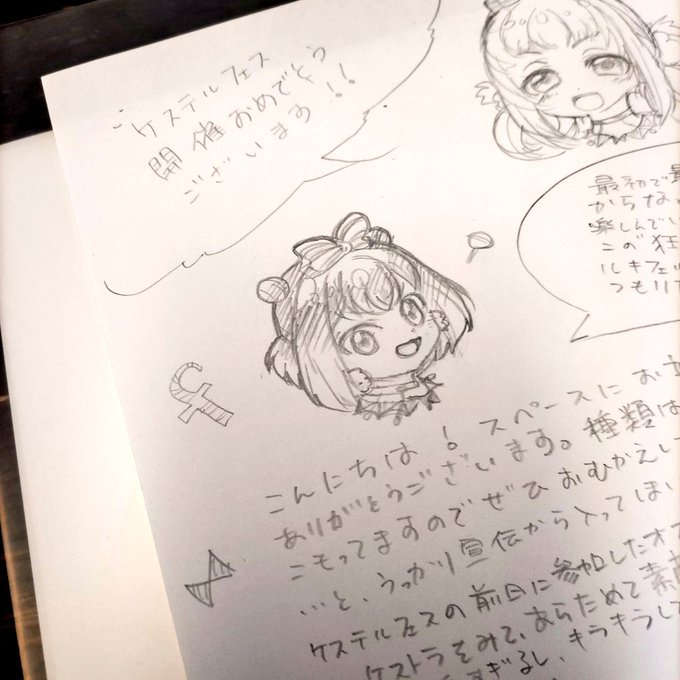 ケステルフェス
開催おめでとう
ございます!!
最初で最
からなく
楽しんでい
この狂
ルキフェ
つもりで
こんにちは!スペースにお立
ありがとうございます。種類は
こもってますのでぜひおむかえし
…と、うっかり宣伝から入ってしまい
ケステルフェスの前日に参加したオ
ケストラをみて、あらためて素
すぎるし、キラキラして